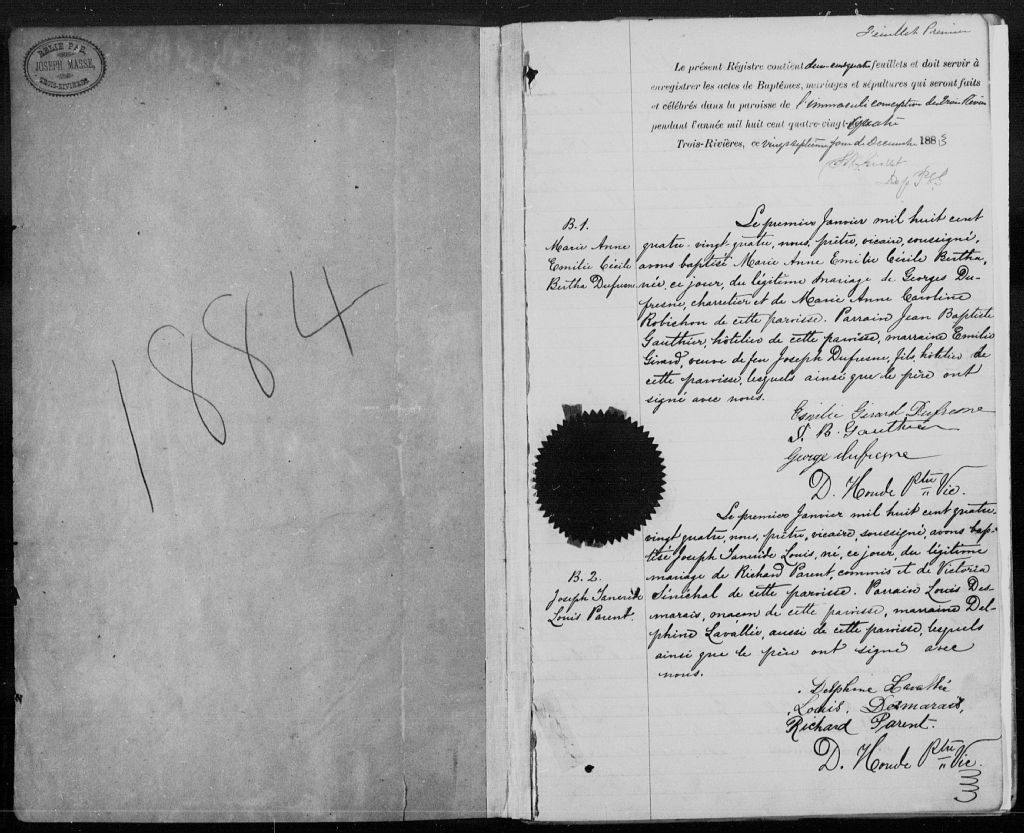 RELIÉ PAR
JOSEPH MASSE,
TROIS-RIVIERES
1884
Feuillet Premier
Le présent Régistre contient deux-cent-quatre feuillets et doit servir à
enregistrer les actes de Baptêmes, mariages et sépultures qui seront faits
et célébrés dans la paroisse de l'immaculé conception des Trois-Rivières
pendant l'année mil huit cent quatre-vingt-quatre
Trois-Rivières, ce vingt septième jour de Décembre 1883
Dep P.C.S
B.1.
Marie Anne
Emilie Cécile
Bertha Dufresne
Le premier Janvier mil huit cent
quatre-vingt-quatre, nous, prêtre, vicaire, soussigné,
avons baptisé Marie Anne Emilie Cécile Bertha,
née, ce jour, du légitime mariage de Georges Du-
fresne, charretier et de Marie Anne Caroline
Robichon de cette paroisse. Parrain Jean Baptiste
Gauthier, hôtelier de cette paroisse, marraine Emilie
Girard, veuve de feu Joseph Dufresne, fils, hôtelier de
cette paroisse, lesquels ainsi que le père ont
signé avec nous.
Emilie Girard Dufresne
J. B. Gauthier
George dufresne
D. Houde Ptre Vic.
B.2.
Joseph Tancrède
Louis Parent.
Le premier Janvier mil huit cent quatre-
vingt quatre, nous, prêtre, vicaire, soussigné, avons bap-
tisé Joseph Tancrède Louis, né, ce jour, du légitime
mariage de Richard Parent, commis et de Victoria
Sénéchal de cette paroisse. Parrain Louis Des-
marais, maçon de cette paroisse, marraine Del-
phine Lavallée, aussi de cette paroisse, lesquels
ainsi que le père ont signé avec
nous.
Delphine Lavallée
Louis. Desmarais,
Richard Parent.
D. Houde Ptre Vic.